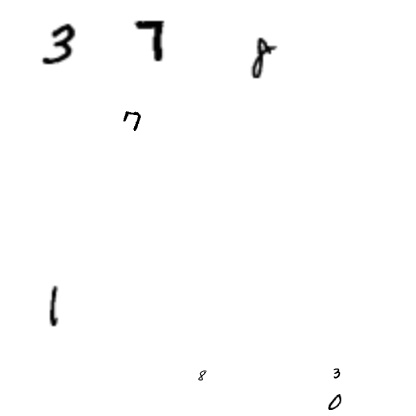 3 7 8
7
1
8 3
0